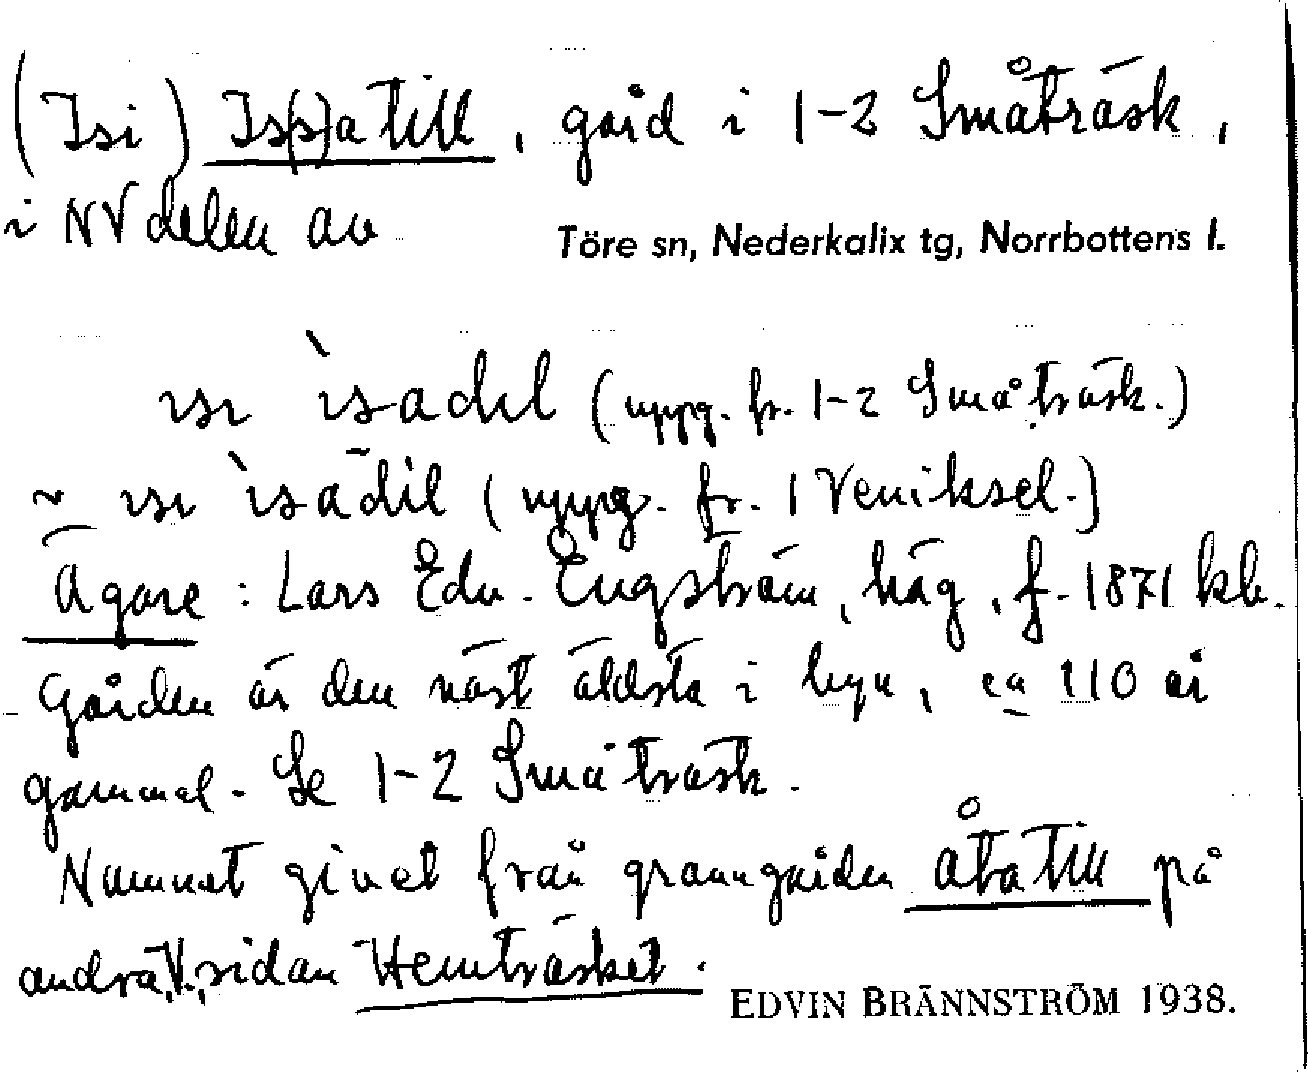 (Isi) Is(s)a till, gård i 1-2 Småträsk,
i NV delen av Töre sn, Nederkalix tg, Norrbottens l.
ısı ˋısadıl (uppg. fr. 1-2 Småträsk.)
~ ısı ˋısādil (uppg. fr. 1 Veniksel.)
Ägare: Lars Edv. Engström, häg, f. 1871 kb.
Gården är den näst äldsta i byn, ca 110 år
gammal. Se 1-2 Småträsk.
Namnet givet från granngården åta till på
andra, V., sidan Hemträsket.
EDVIN BRÄNNSTRÖM 1938.